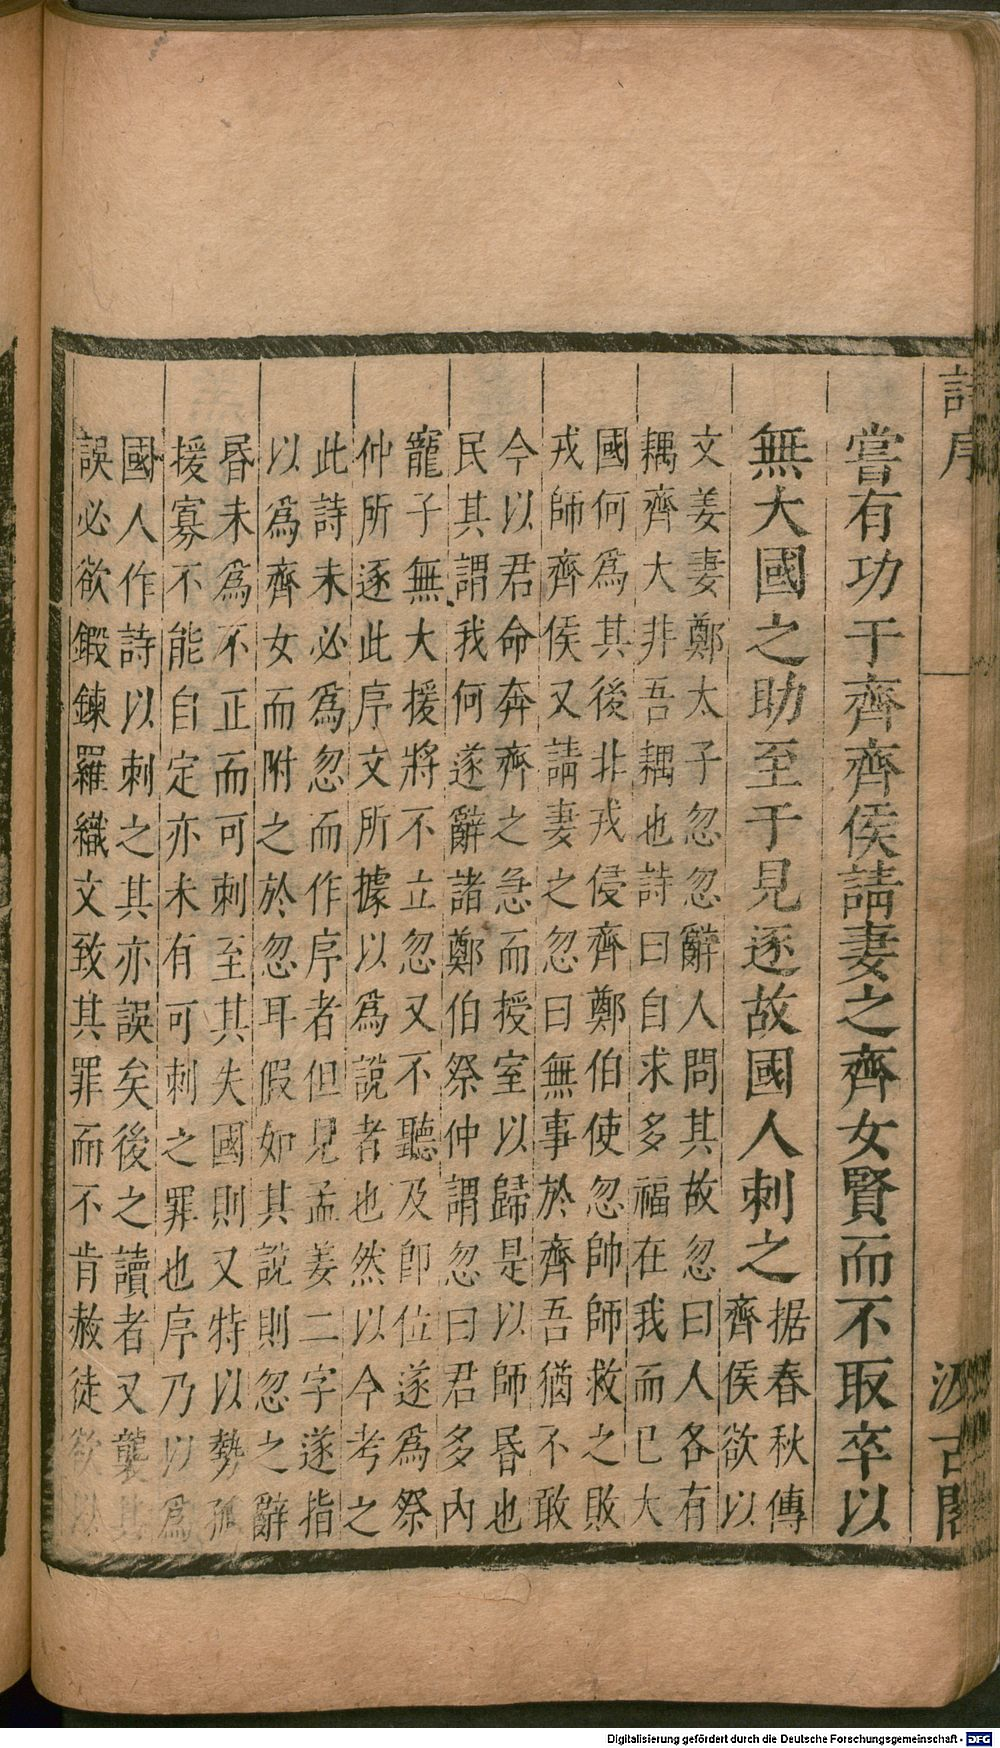 詩序
汲古閣
嘗有功于齊齊侯請妻之齊女賢而不取卒以
無大國之助至于見逐故國人刺之
据春秋傳
齊侯欲以
文姜妻鄭太子忽忽辭人問其故忽曰人各有
耦齊大非吾耦也詩曰自求多福在我而已大
國何為其後北戎侵齊鄭伯使忽帥師救之敗
戎師齊侯又請妻之忽曰無事於齊吾猶不敢
今以君命奔齊之急而授室以歸是以師昏也
民其謂我何遂辭諸鄭伯祭仲謂忽曰君多內
寵子無大援將不立忽又不聽及卽位遂為祭
仲所逐此序文所據以為說者也然以今考之
此詩未必為忽而作序者但見孟姜二字遂指
以為齊女而附之於忽耳假如其說則忽之辭
昏未為不正而可刺至其失國則又特以勢孤
援寡不能自定亦未有可刺之罪也序乃以為
國人作詩以刺之其亦誤矣後之讀者又襲其
誤必欲鍛鍊羅織文致其罪而不肯赦徒欲以
Digitalisierung gefördert durch die Deutsche Forschungsgemeinschaft - DFG